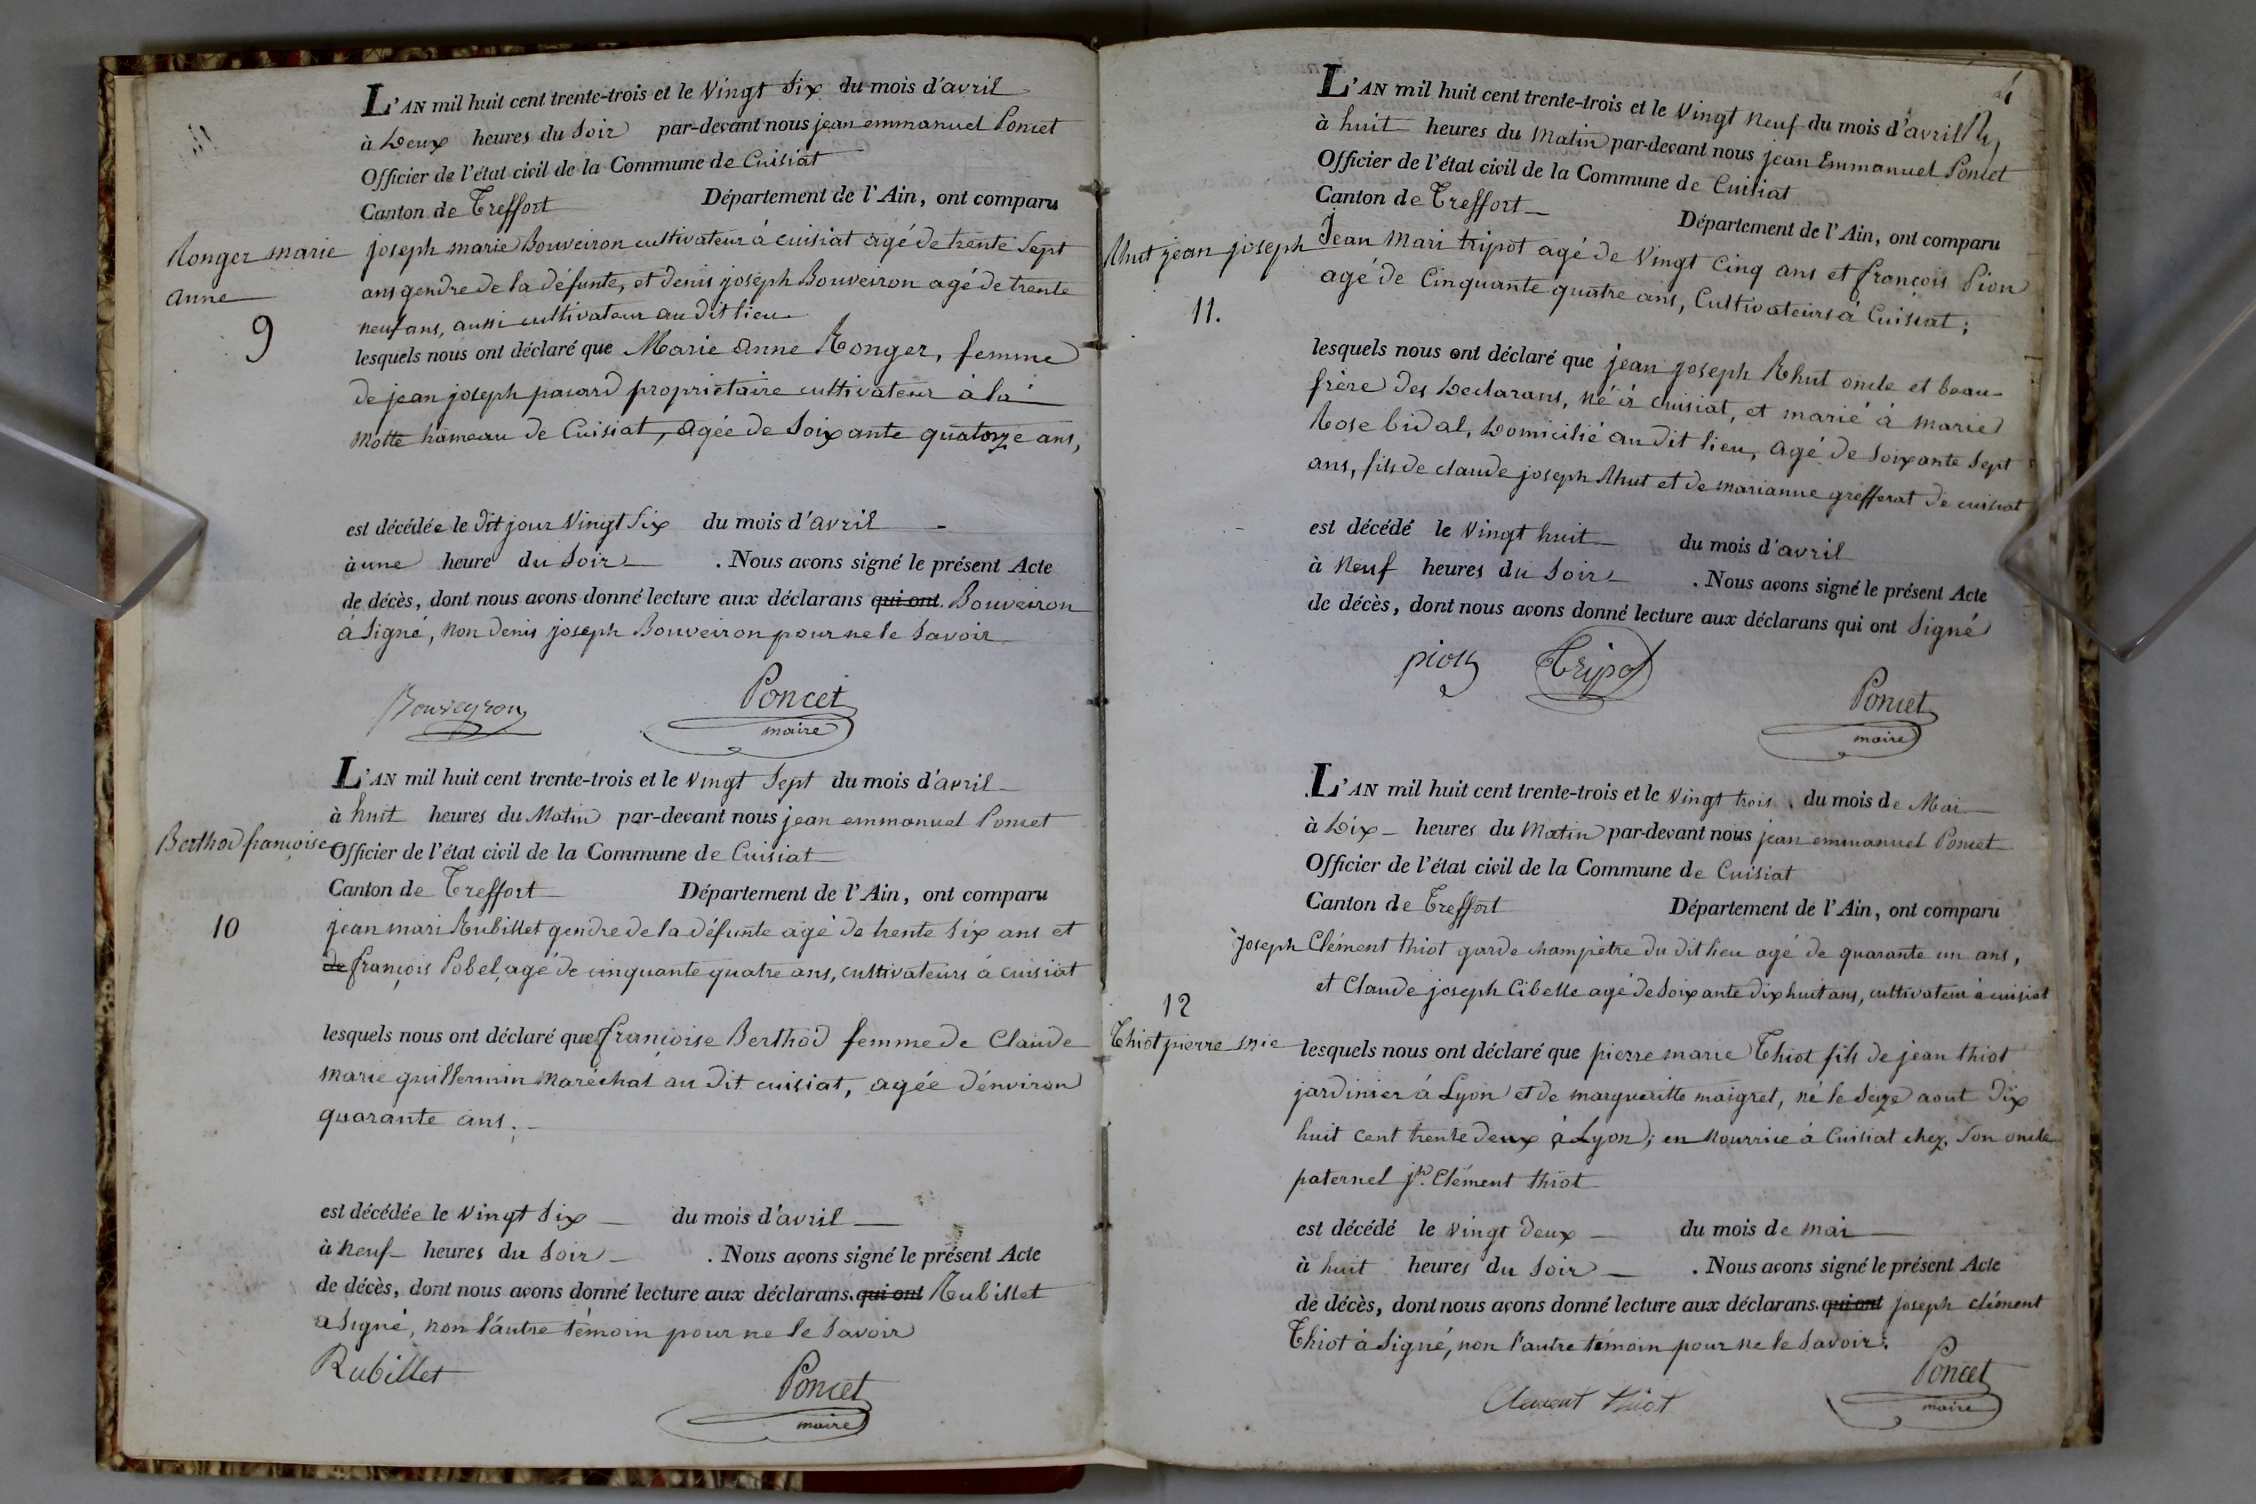 L'AN mil huit cent trente-trois et le Vingt Six du mois d'avril
à Deux heures du Soir par-devant nous jean emmanuel Poncet
Officier de l'état civil de la Commune de Cuisiat
Canton de Treffort Département de l'Ain, ont comparu
Ronger marie
anne
9
joseph marie Bouveiron cultivateur à cuisiat agé de trente Sept
ans gendre de la défunte, et denis joseph Bouveiron agé de trente
neuf ans, aussi cultivateur au dit lieu
lesquels nous ont déclaré que Marie anne Ronger, femme
de jean joseph pacard propriétaire cultivateur à la
Motte hameau de Cuisiat, agée de Soixante quatorze ans,
est décédée le dit jour Vingt Six du mois d'avril
à une heure du Soir . Nous avons signé le présent Acte
de décès, dont nous avons donné lecture aux déclarans qui ont. Bouveiron
à Signé, non denis joseph Bouveiron pour ne le Savoir
Bouveyron
Poncet
maire
L'AN mil huit cent trente-trois et le Vingt Sept du mois d'avril
à huit heures du Matin par-devant nous jean emmanuel Poncet
Berthod françoise
Officier de l'état civil de la Commune de Cuisiat
Canton de Treffort Département de l'Ain, ont comparu
10
jean mari Rubillet gendre de la défunte agé de trente Six ans et
de françois Pobel, agé de cinquante quatre ans, cultivateurs à cuisiat
lesquels nous ont déclaré que françoise Berthod femme de Claude
Marie guillermin Maréchal au dit cuisiat, agée d'énviron
quarante ans.
est décédée le Vingt Six du mois d'avril
à Neuf heures du Soir . Nous avons signé le présent Acte
de décès, dont nous avons donné lecture aux déclarans. qui ont Rubillet
a Signé, non l'autre témoin pour ne le Savoir
Rubillet
Poncet
maire
L'AN mil huit cent trente-trois et le Vingt Neuf du mois d'avril
à huit heures du Matin par-devant nous jean Emmanuel Poncet
Officier de l'état civil de la Commune de Cuisiat
Canton de Treffort
Département de l'Ain, ont comparu
Rhut jean joseph
11.
Jean Mari tripot agé de Vingt Cinq ans et françois Pion
agé de Cinquante quatre ans, Cultivateurs à Cuisiat;
lesquels nous ont déclaré que jean joseph Rhut oncle et beau
frère des Declarans, né à cuisiat, et marié à marie
Rose bidal, Domicilié au dit lieu, agé de Soixante Sept
ans, fils de claude joseph Rhut et de marianne grefferat de cuisiat
est décédé le Vingt huit du mois d'avril
à Neuf heures du Soir . Nous avons signé le présent Acte
de décès, dont nous avons donné lecture aux déclarans qui ont Signé
pion
Tripot
Poncet
maire
L'AN mil huit cent trente-trois et le Vingt trois du mois de Mai
à Dix heures du Matin par-devant nous jean emmanuel Poncet
Officier de l'état civil de la Commune de Cuisiat
Canton de Treffort Département de l'Ain, ont comparu
joseph Clément thiot garde champêtre du dit lieu agé de quarante un ans,
et Claude joseph Cibelle agé de Soixante dix huit ans, cultivateur à cuisiat
12
Thiot pierre mie
lesquels nous ont déclaré que pierre marie Thiot fils de jean thiot
jardinier à Lyon et de margueritte maigret, né le Seize aout dix
huit cent trente deux à Lyon; en Nourrice à Cuisiat chez Son oncle
paternel jh. Clément thiot
est décédé le Vingt deux du mois de mai
à huit heures du Soir . Nous avons signé le présent Acte
de décès, dont nous avons donné lecture aux déclarans. qui ont joseph clément
Thiot à Signé, non l'autre témoin pour ne le Savoir.
Clement thiot
Poncet
maire